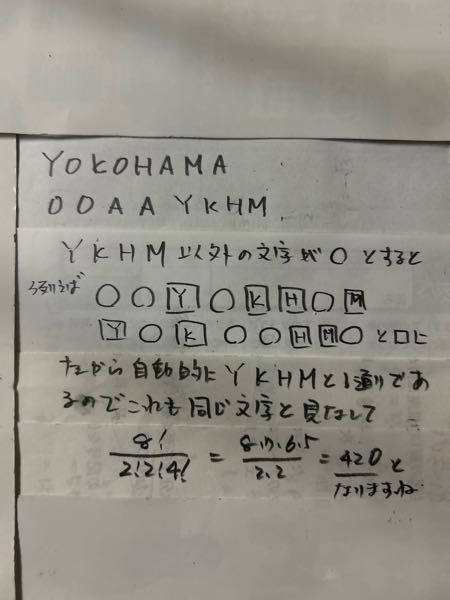 YOKOHAMA
OOAA YKHM
YKHM 以外の文字が○とすると
例えば ○○Y○KH○M
Y○K○○HM○ と□に
だから自動的にYKHMと1通りであ
るのでこれも同じ文字と見なして
8! / 2!2!4! = 8.7.6.5 / 2.2 = 420 と
なりますね